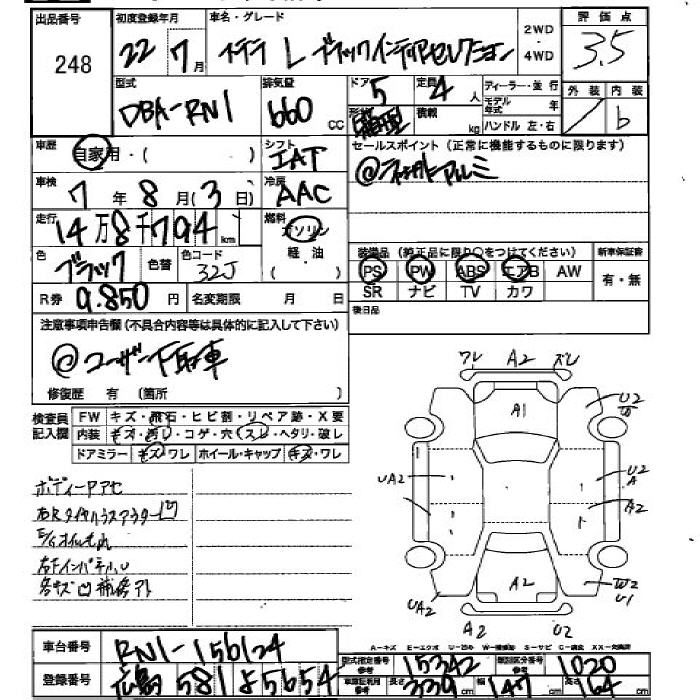 出品番号 初度登録年月 車名・グレード 2WD ・ 4WD 評価点
248 22 7月 ステラ L ブラックインテリアセレクション 3.5
型式 排気量 ドア 定員 ディーラー・並行 外装 内装
DBA-RN1 660 CC 5 4人 モデル年式 年 b
形状 積載 kg ハンドル 左・右
車歴 自家用・( ) シフト IAT セールスポイント(正常に機能するものに限ります)
車検 7年8月(3日) 冷房 AAC
走行 14万8千794km 燃料 ガソリン ・ 軽油
色 ブラック 色替 色コード 32J
装備品(純正品に限り○をつけてください) 新車保証書
PS PW ABS エアB AW 有・無
SR ナビ TV カワ
R券 9.850円 名変期限 月 日 後日品
注意事項申告欄(不具合内容等は具体的に記入して下さい)
@ユーザー下取車
修復歴 有(箇所 )
検査員記入欄 FW キズ・飛石・ヒビ割・リペア跡・X要
内装 キズ・汚レ・コゲ・穴(スレ)・ヘタリ・破レ
ドアミラー キズ・ワレ ホイール・キャップ キズ・ワレ
ワレ A2 ズレ
A1
U2
UA2
U2
A
A2
A2
UA2
W2
U1
A2 U2
ボディーアセ
各キズ凹補修アト
A-キズ E-エクボ U-凹み W-補修跡 S-サビ C-腐食 XX-交換済
車台番号 RN1-156124
型式指定番号 15342 類別区分番号 1020
登録番号 広島 581 よ 5654
車庫証明利用参考 長さ 339cm 幅 147cm 高さ 164cm